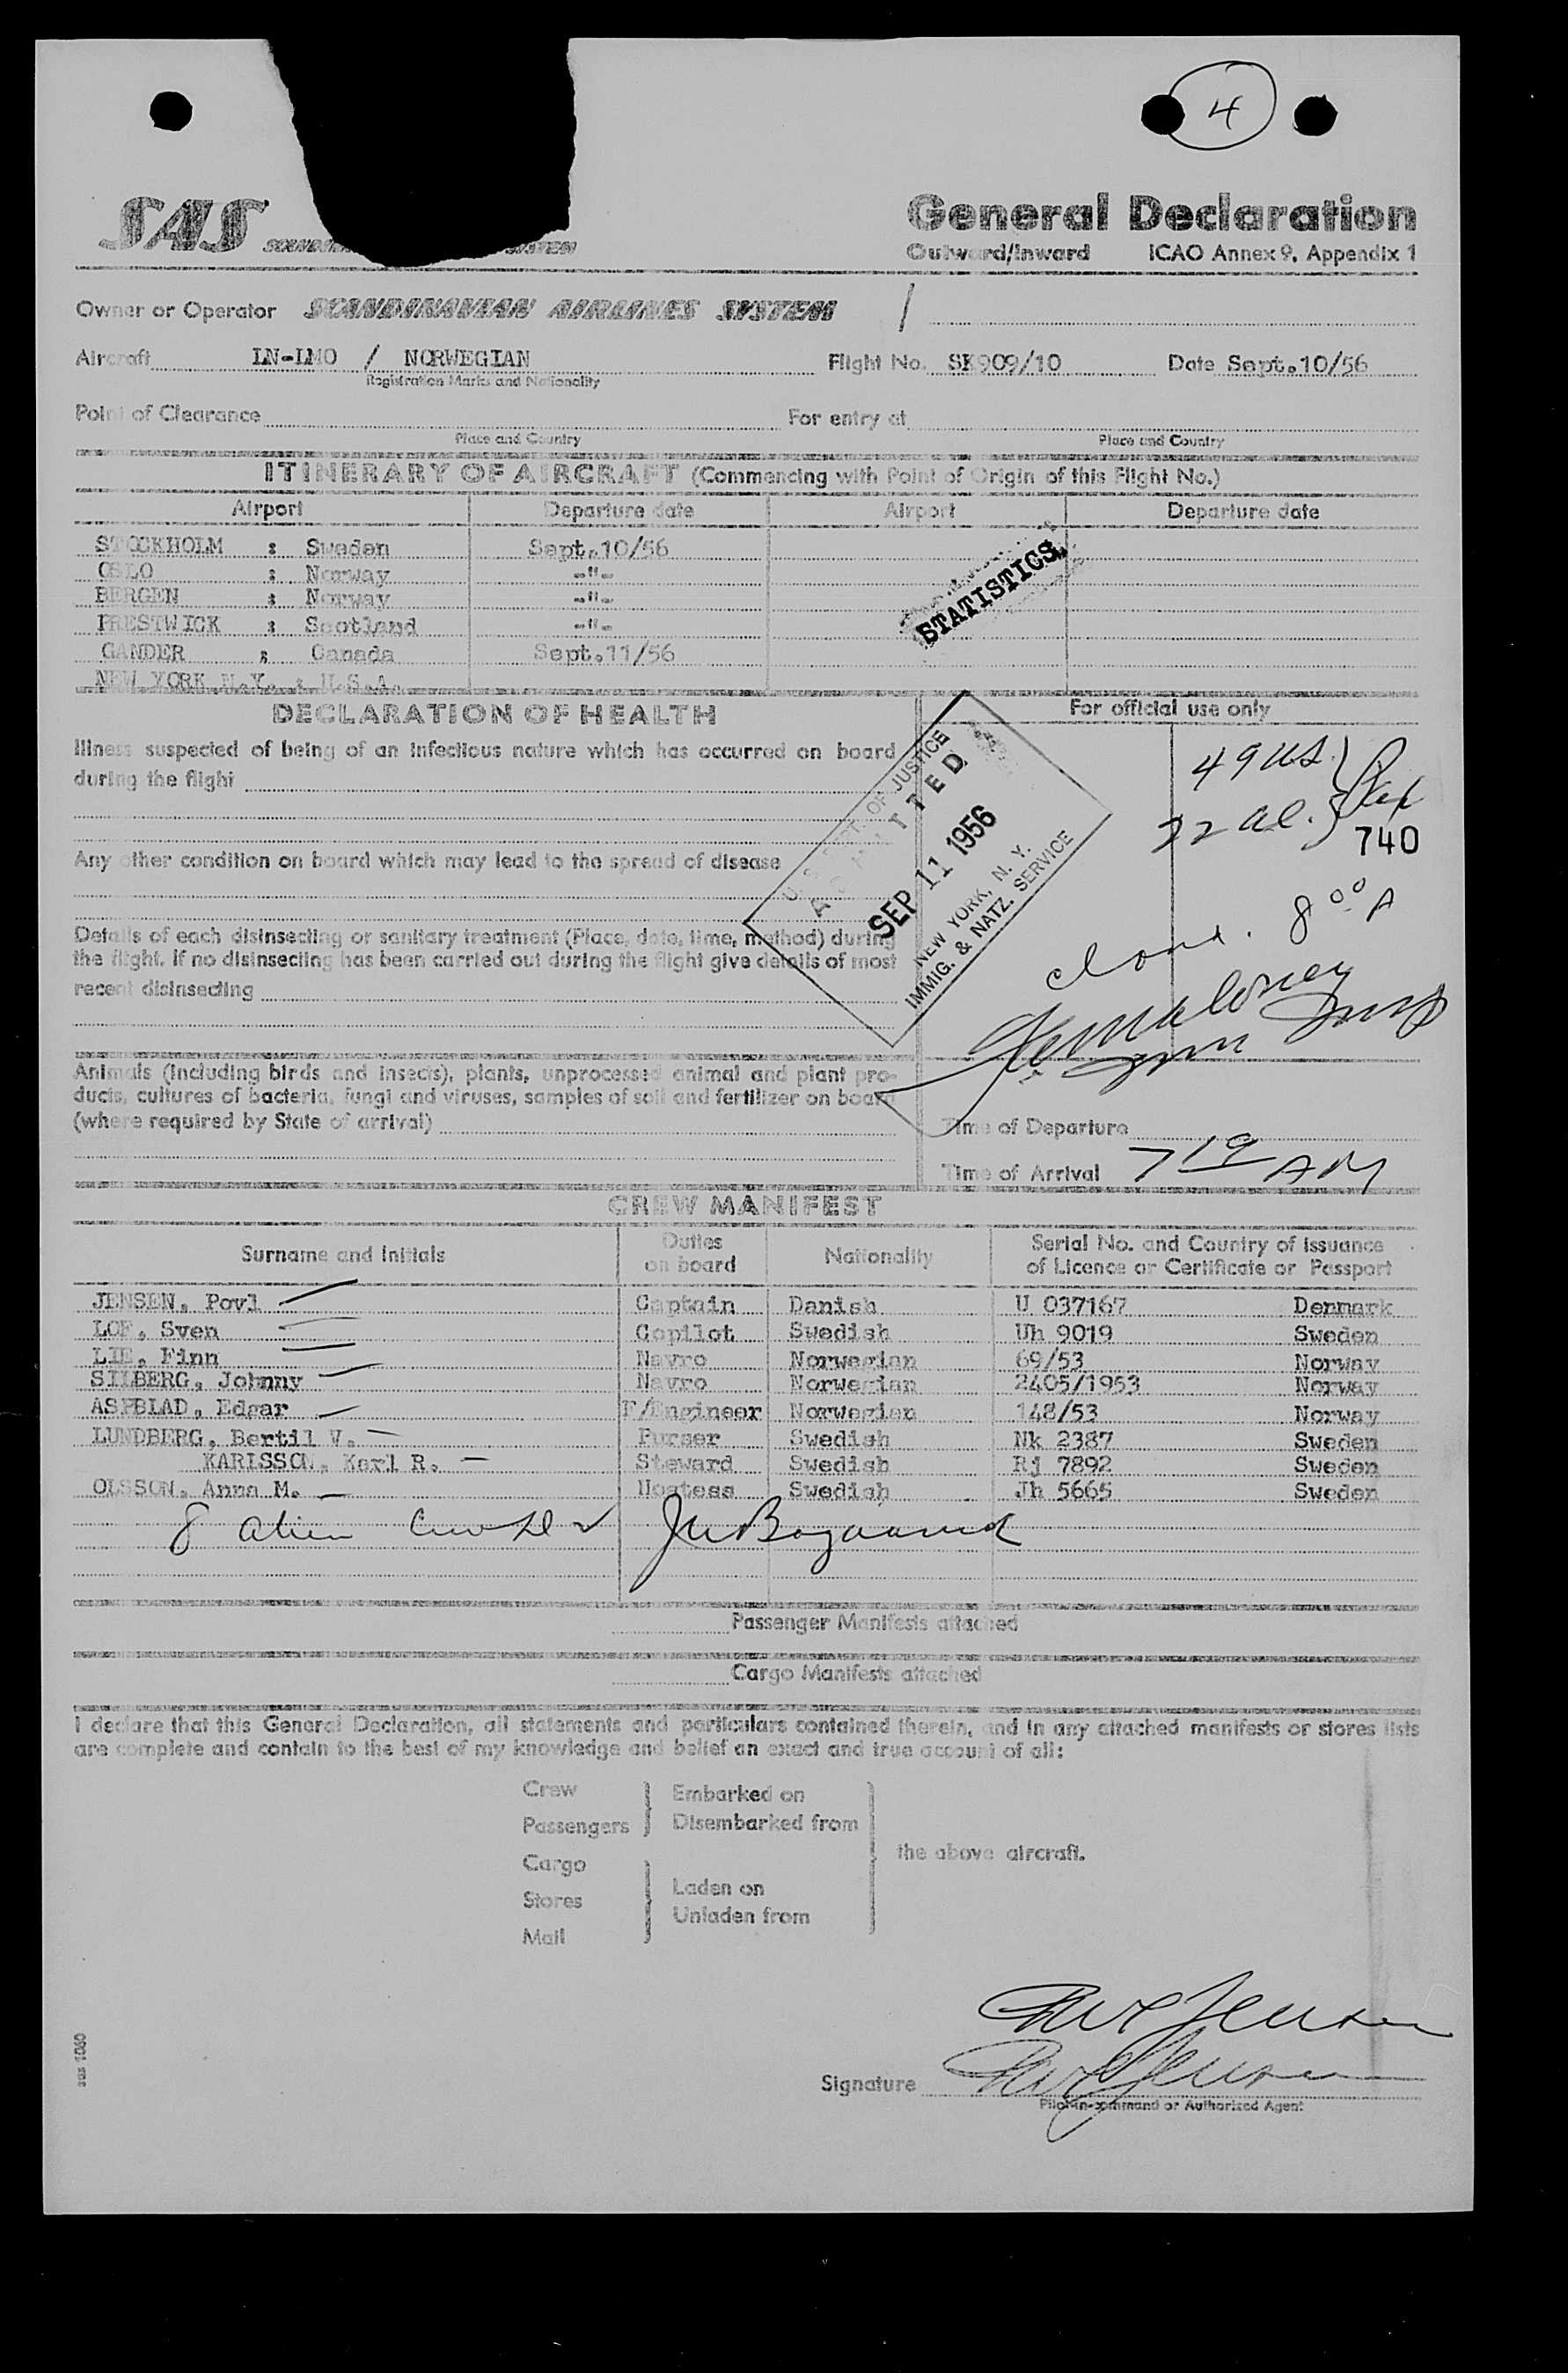 4
SAS
SYSTEM
General Declaration
Outward/Inward ICAO Annex 9, Appendix 1
Owner or Operator SCANDINAVIAN AIRLINES SYSTEM /
Aircraft LN-LMO / NORWEGIAN Flight No. SK909/10 Date Sept.10/56
Registration Marks and Nationality
Point of Clearance For entry at
Place and Country Place and Country
ITINERARY OF AIRCRAFT (Commencing with Point of Origin of this Flight No.)
Airport Departure date Airport Departure date
STOCKHOLM : Sweden Sept.10/56
OSLO : Norway -"-
BERGEN : Norway -"-
PRESTWICK : Scotland -"-
GANDER : Canada Sept.11/56
NEW YORK N.Y. : U.S.A.
STATISTICS
DECLARATION OF HEALTH
Illness suspected of being of an infectious nature which has occurred on board
during the flight
Any other condition on board which may lead to the spread of disease
Details of each disinsecting or sanitary treatment (Place, date, time, method) during
the flight. If no disinsecting has been carried out during the flight give details of most
recent disinsecting
Animals (including birds and insects), plants, unprocessed animal and plant pro-
ducts, cultures of bacteria, fungi and viruses, samples of soil and fertilizer on board
(where required by State of arrival)
U. S. DEPT. OF JUSTICE
ADMITTED
SEP 11 1956
NEW YORK, N. Y.
IMMIG. & NATZ. SERVICE
For official use only
49 US.
22 al. Pax
740
8 00 A
Time of Departure
Time of Arrival 7 19 AM
CREW MANIFEST
Surname and Initials Duties on board Nationality Serial No. and Country of Issuance of Licence or Certificate or Passport
JENSEN, Povl Captain Danish U 037167 Denmark
LOF, Sven Copilot Swedish Uh 9019 Sweden
LIE, Finn Navro Norwegian 69/53 Norway
SILBERG, Johnny Navro Norwegian 2405/1953 Norway
ASPBLAD, Edgar F/Engineer Norwegian 148/53 Norway
LUNDBERG, Bertil V. Purser Swedish Nk 2387 Sweden
KARLSSON, Karl R. Steward Swedish Rj 7892 Sweden
OLSSON, Anna M. Hostess Swedish Jh 5665 Sweden
8 alien
Passenger Manifests attached
Cargo Manifests attached
I declare that this General Declaration, all statements and particulars contained therein, and in any attached manifests or stores lists
are complete and contain to the best of my knowledge and belief an exact and true account of all:
Crew
Passengers
Embarked on
Disembarked from
Cargo
Stores
Mail
Laden on
Unladen from
the above aircraft.
Povl Jensen
Signature Povl Jensen
Pilot-in-command or Authorized Agent
sas 1060